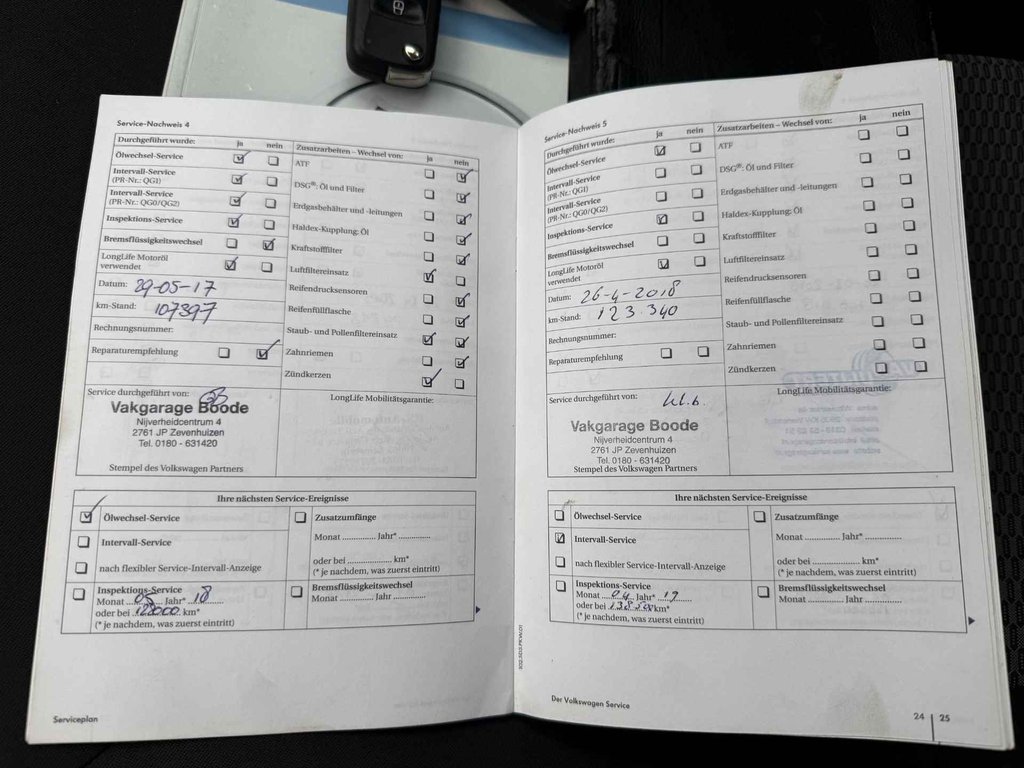 Service-Nachweis 4
Durchgeführt wurde: ja nein
Ölwechsel-Service
Intervall-Service
(PR-Nr.: QG1)
Intervall-Service
(PR-Nr.: QG0/QG2)
Inspektions-Service
Bremsflüssigkeitswechsel
LongLife Motoröl
verwendet
Datum: 29-05-17
km-Stand: 107397
Rechnungsnummer:
Reparaturempfehlung
Zusatzarbeiten – Wechsel von: ja nein
ATF
DSG®: Öl und Filter
Erdgasbehälter und -leitungen
Haldex-Kupplung: Öl
Kraftstofffilter
Luftfiltereinsatz
Reifendrucksensoren
Reifenfüllflasche
Staub- und Pollenfiltereinsatz
Zahnriemen
Zündkerzen
Service durchgeführt von:
Vakgarage Boode
Nijverheidcentrum 4
2761 JP Zevenhuizen
Tel. 0180 - 631420
Stempel des Volkswagen Partners
LongLife Mobilitätsgarantie:
Ihre nächsten Service-Ereignisse
Ölwechsel-Service
Intervall-Service
nach flexibler Service-Intervall-Anzeige
Inspektions-Service
Monat 05 Jahr* 18
oder bei km*
(* je nachdem, was zuerst eintritt)
Zusatzumfänge
Monat .............. Jahr* ..............
oder bei .................... km*
(* je nachdem, was zuerst eintritt)
Bremsflüssigkeitswechsel
Monat ............ Jahr ..............
Serviceplan
Service-Nachweis 5
Durchgeführt wurde: ja nein
Ölwechsel-Service
Intervall-Service
(PR-Nr.: QG1)
Intervall-Service
(PR-Nr.: QG0/QG2)
Inspektions-Service
Bremsflüssigkeitswechsel
LongLife Motoröl
verwendet
Datum: 26-4-2018
km-Stand: 123.340
Rechnungsnummer:
Reparaturempfehlung
Zusatzarbeiten – Wechsel von: ja nein
ATF
DSG®: Öl und Filter
Erdgasbehälter und -leitungen
Haldex-Kupplung: Öl
Kraftstofffilter
Luftfiltereinsatz
Reifendrucksensoren
Reifenfüllflasche
Staub- und Pollenfiltereinsatz
Zahnriemen
Zündkerzen
Service durchgeführt von:
Vakgarage Boode
Nijverheidcentrum 4
2761 JP Zevenhuizen
Tel. 0180 - 631420
Stempel des Volkswagen Partners
LongLife Mobilitätsgarantie:
Ihre nächsten Service-Ereignisse
Ölwechsel-Service
Intervall-Service
nach flexibler Service-Intervall-Anzeige
Inspektions-Service
Monat 04 Jahr* 19
oder bei km*
(* je nachdem, was zuerst eintritt)
Zusatzumfänge
Monat .............. Jahr* ..............
oder bei .................... km*
(* je nachdem, was zuerst eintritt)
Bremsflüssigkeitswechsel
Monat ............ Jahr ..............
Der Volkswagen Service
24 | 25